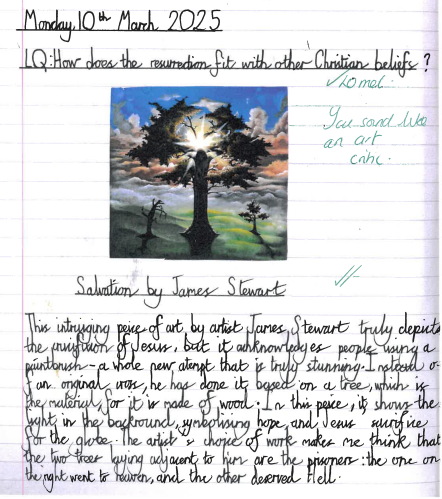 Monday, 10th March 2025
LQ: How does the resurrection fit with other Christian beliefs?
LO met.
You sound like
an art
critic.
Salvation by James Stewart
This intruiging peice of art, by artist James Stewart truly depicts
the crucifixion of Jesus, but it acknowledges people using a
paintbrush - a whole new atempt that is truly stunning. Instead o-
f an original cross, he has done it based on a tree, which is
the material, for it is made of wood. In this peice, it shows the
light, in the backround, symbolising hope and Jesus' sacrifice
for the globe. The artist's choice of work makes me think that
the two trees laying adjacent to him are the prisoners: the one on
the right went to heaven, and the other deserved Hell.